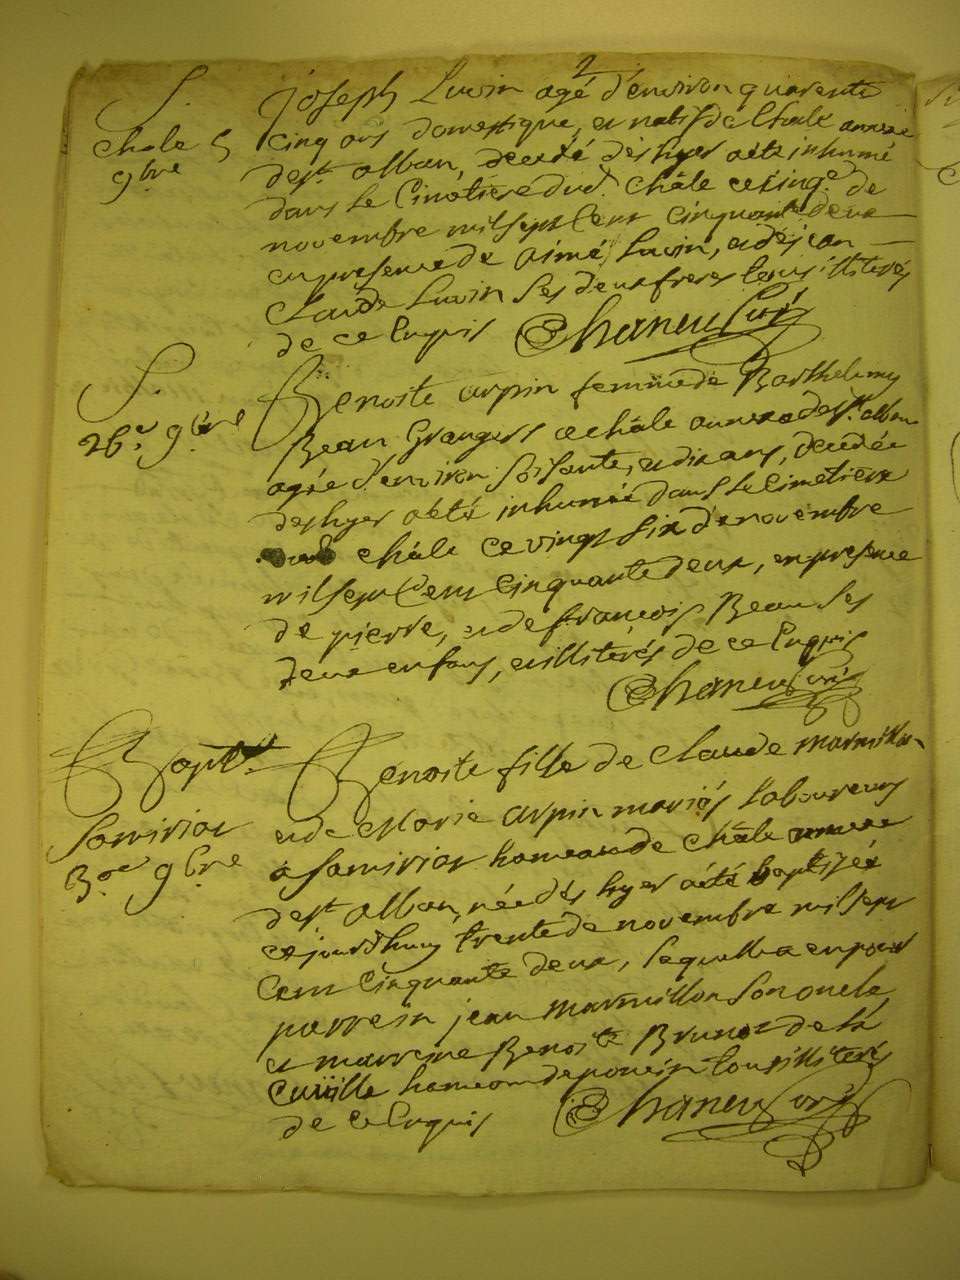 2
S.
Châle 5
9bre
Joseph Luvin agé d'environ quarente
cinq ans domestique, et natif de Châle annexe
de St. alban, decedé dès hyer a été inhumé
dans le Cimetiere dud. Châle ce cinqe. de
novembre mil sept Cent cinquante deux
en presence de aimé Luvin, et de jean
Claude Luvin ses deux freres tous illiterés
de ce Enquis Chaneu Curé
S.
26e. 9bre
Benoite arpin femme de Barthelemy
Bean Grangers a châle annexe de St. alban
agée d'environ soisante, et dix ans, decedée
des hyer a été inhumée dans le Cimetiere
châle ce vingt six de novembre
mil sept Cent Cinquante deux, en presence
de pierre, et de francois Bean ses
deux enfans, illiterés de ce Enquis
Chaneu Curé
Bapte.
3oe 9bre
Benoite fille de Claude Marmillon
et de Marie arpin mariés Laboureurs
a hameau de Châle annexe
de St. alban, née dès hyer a été baptisée
ce jourdhuy trente de novembre mil sept
Cent Cinquante deux, laquelle a eu pour
parrein jean Marmillon son oncle,
et marreine Benoite Brunet de la
Cuëille hameau de poncin tous illiterés
de ce Enquis Chaneu Curé